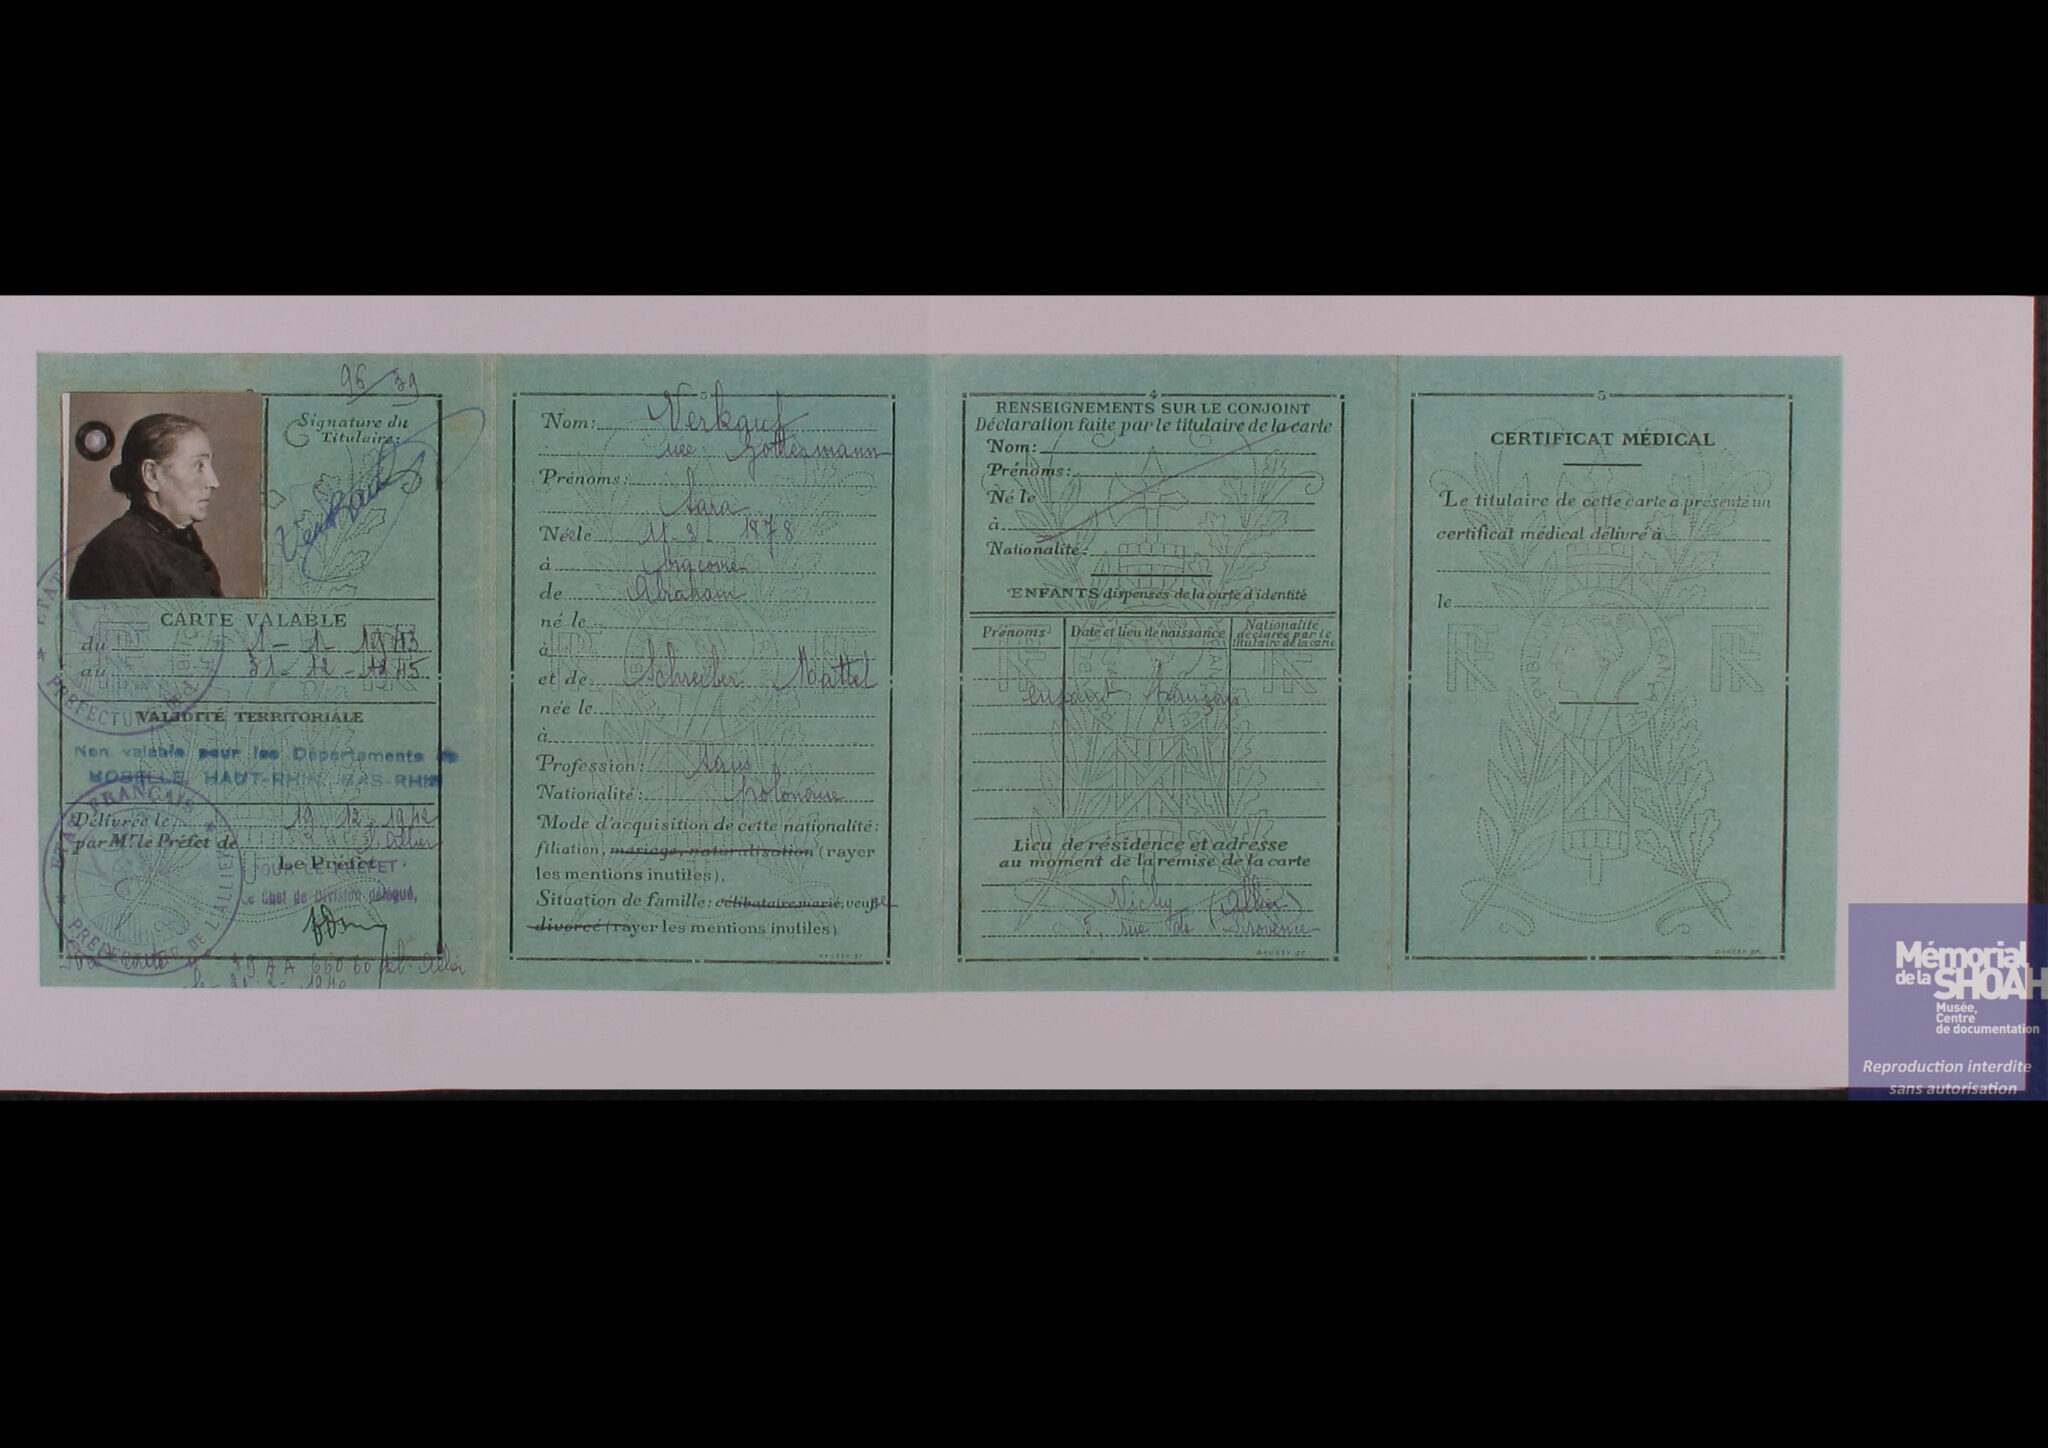 96/39
Signature du
Titulaire:
Verkauf
CARTE VALABLE
du 1 - 1 1943
au 31 - 12 - 1945
VALIDITÉ TERRITORIALE
Non valable pour les Départements de
MOSELLE, HAUT-RHIN, BAS-RHIN
Délivrée le 19 12. 1942
par Mr. le Préfet de l'Allier
Le Préfet,
POUR LE PRÉFET.
Le Chef de Division délégué,
ETAT FRANÇAIS
PRÉFECTURE DE L'ALLIER
39 AA 66060 Allier
3
Nom: Verkauf
née: Gottesmann
Prénoms:
Sara
Née le 11-3- 1878
à
de Abraham
né le
à
et de Schreiber Mattel
née le
à
Profession: sans
Nationalité: Polonaise
Mode d'acquisition de cette nationalité:
filiation, mariage, naturalisation (rayer
les mentions inutiles).
Situation de famille: célibataire, marié, veuf ve
divorcé (rayer les mentions inutiles)
GAUSSY gr.
4
RENSEIGNEMENTS SUR LE CONJOINT
Déclaration faite par le titulaire de la carte
Nom:
Prénoms:
Né le
à
Nationalité:
ENFANTS dispensés de la carte d'identité
Prénoms Date et lieu de naissance Nationalité déclarée par le titulaire de la carte
Lieu de résidence et adresse
au moment de la remise de la carte
Vichy (Allier)
5, rue de Provence
GAUSSY gr.
5
CERTIFICAT MÉDICAL
Le titulaire de cette carte a présenté un
certificat médical délivré à
le
RF
RÉPUBLIQUE FRANÇAISE
RF
GAUSSY gr.
Mémorial
de la SHOAH
Musée,
Centre
de documentation
Reproduction interdite
sans autorisation